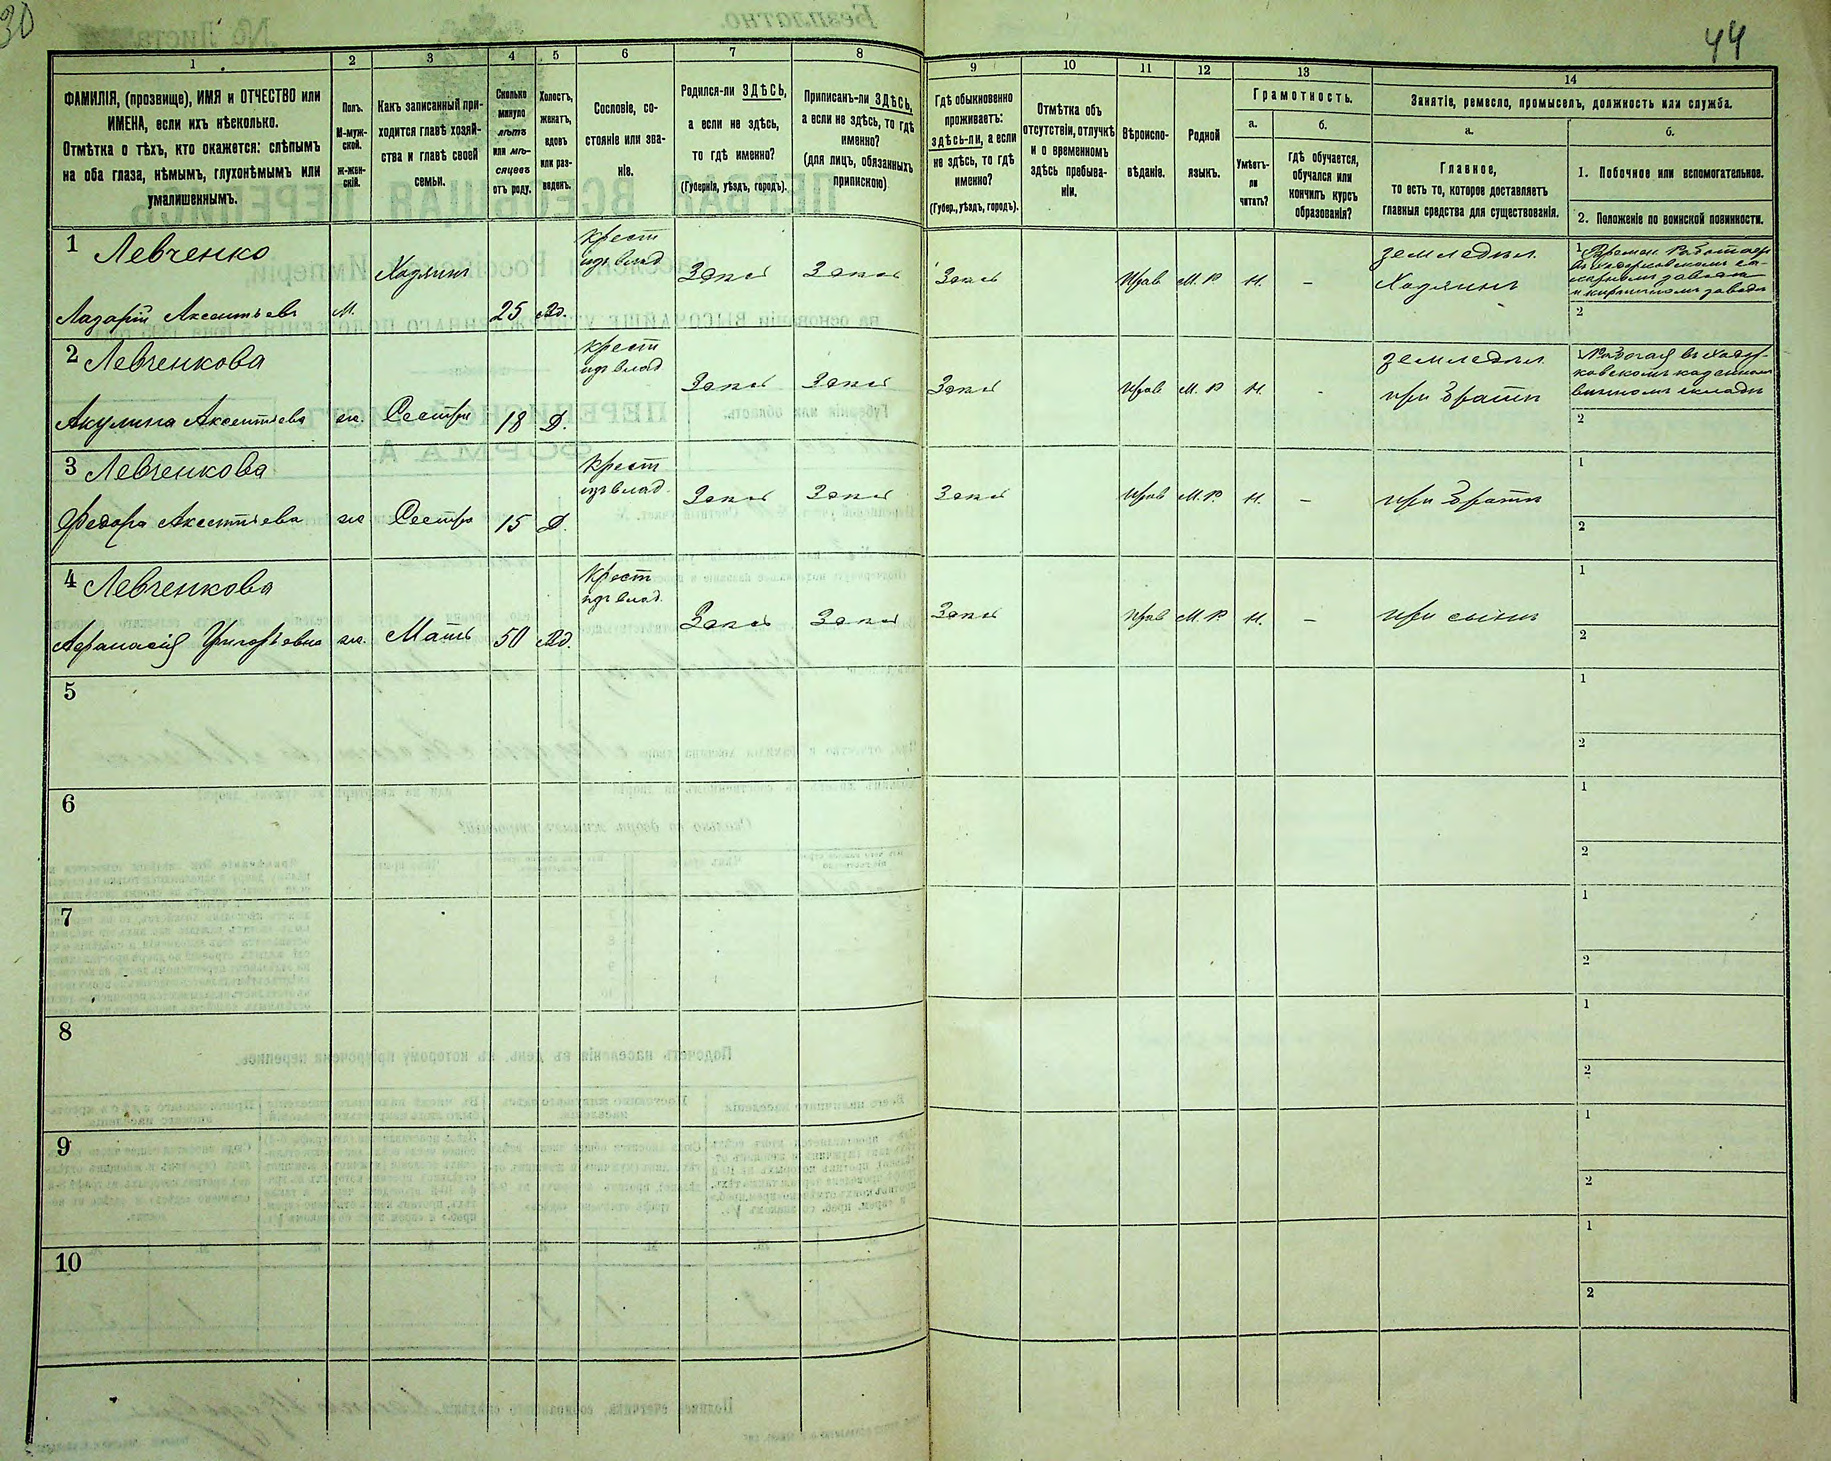 30
44
1
2
3
4
5
6
7
8
9
10
11
12
13
14
ФАМИЛІЯ, (прозвище), ИМЯ и ОТЧЕСТВО или
ИМЕНА, если ихъ нѣсколько.
Отмѣтка о тѣхъ, кто окажется: слѣпымъ
на оба глаза, нѣмымъ, глухонѣмымъ или
умалишеннымъ.
Полъ.
М-муж-
ской.
ж-жен-
скій.
Какъ записанный при-
ходится главѣ хозяй-
ства и главѣ своей
семьи.
Сколько
минуло
лѣтъ
или мѣ-
сяцевъ
отъ роду.
Холостъ,
женатъ,
вдовъ
или раз-
веденъ.
Сословіе, со-
стояніе или зва-
ніе.
Родился-ли ЗДѢСЬ,
а если не здѣсь,
то гдѣ именно?
(Губернія, уѣздъ, городъ).
Приписанъ-ли ЗДѢСЬ,
а если не здѣсь, то гдѣ
именно?
(для лицъ, обязанныхъ
припискою)
Гдѣ обыкновенно
проживаетъ:
здѣсь-ли, а если
не здѣсь, то гдѣ
именно?
(Губер., уѣздъ, городъ).
Отмѣтка объ
отсутствіи, отлучкѣ
и о временномъ
здѣсь пребыва-
ніи.
Вѣроиспо-
вѣданіе.
Родной
языкъ.
Грамотность.
а.
Умѣетъ-
ли
читать?
б.
Гдѣ обучается,
обучался или
кончилъ курсъ
образованія?
Занятіе, ремесло, промыселъ, должность или служба.
а.
Главное,
то есть то, которое доставляетъ
главныя средства для существованія.
б.
1. Побочное или вспомогательное.
2. Положеніе по воинской повинности.
1 Левченко
Лазарій Аксентьевъ
М.
Хозяинъ
25
Вд.
крест
изъ влад
Здесь
Здесь
Здесь
Прав
М. Р.
н.
-
земледел
Хозяинъ
1
2
2 Левченкова
Акулина Аксентьева
ж.
Сестра
18
Д.
крест
изъ влад
Здесь
Здесь
Здесь
прав
М. Р.
н.
-
земледел
при братѣ
1
винномъ складѣ
2
3 Левченкова
Федора Аксентьева
ж
Сестра
15
Д.
крест
изъ влад.
Здесь
Здесь
Здесь
прав
М. Р.
н.
-
при братѣ
1
2
4 Левченкова
Афанасія Григорьевна
ж.
Мать
50
Вд.
крест
изъ влад.
Здесь
Здесь
Здесь
прав
М. Р.
н.
-
при сынѣ
1
2
5
1
2
6
1
2
7
1
2
8
1
2
9
1
2
10
1
2